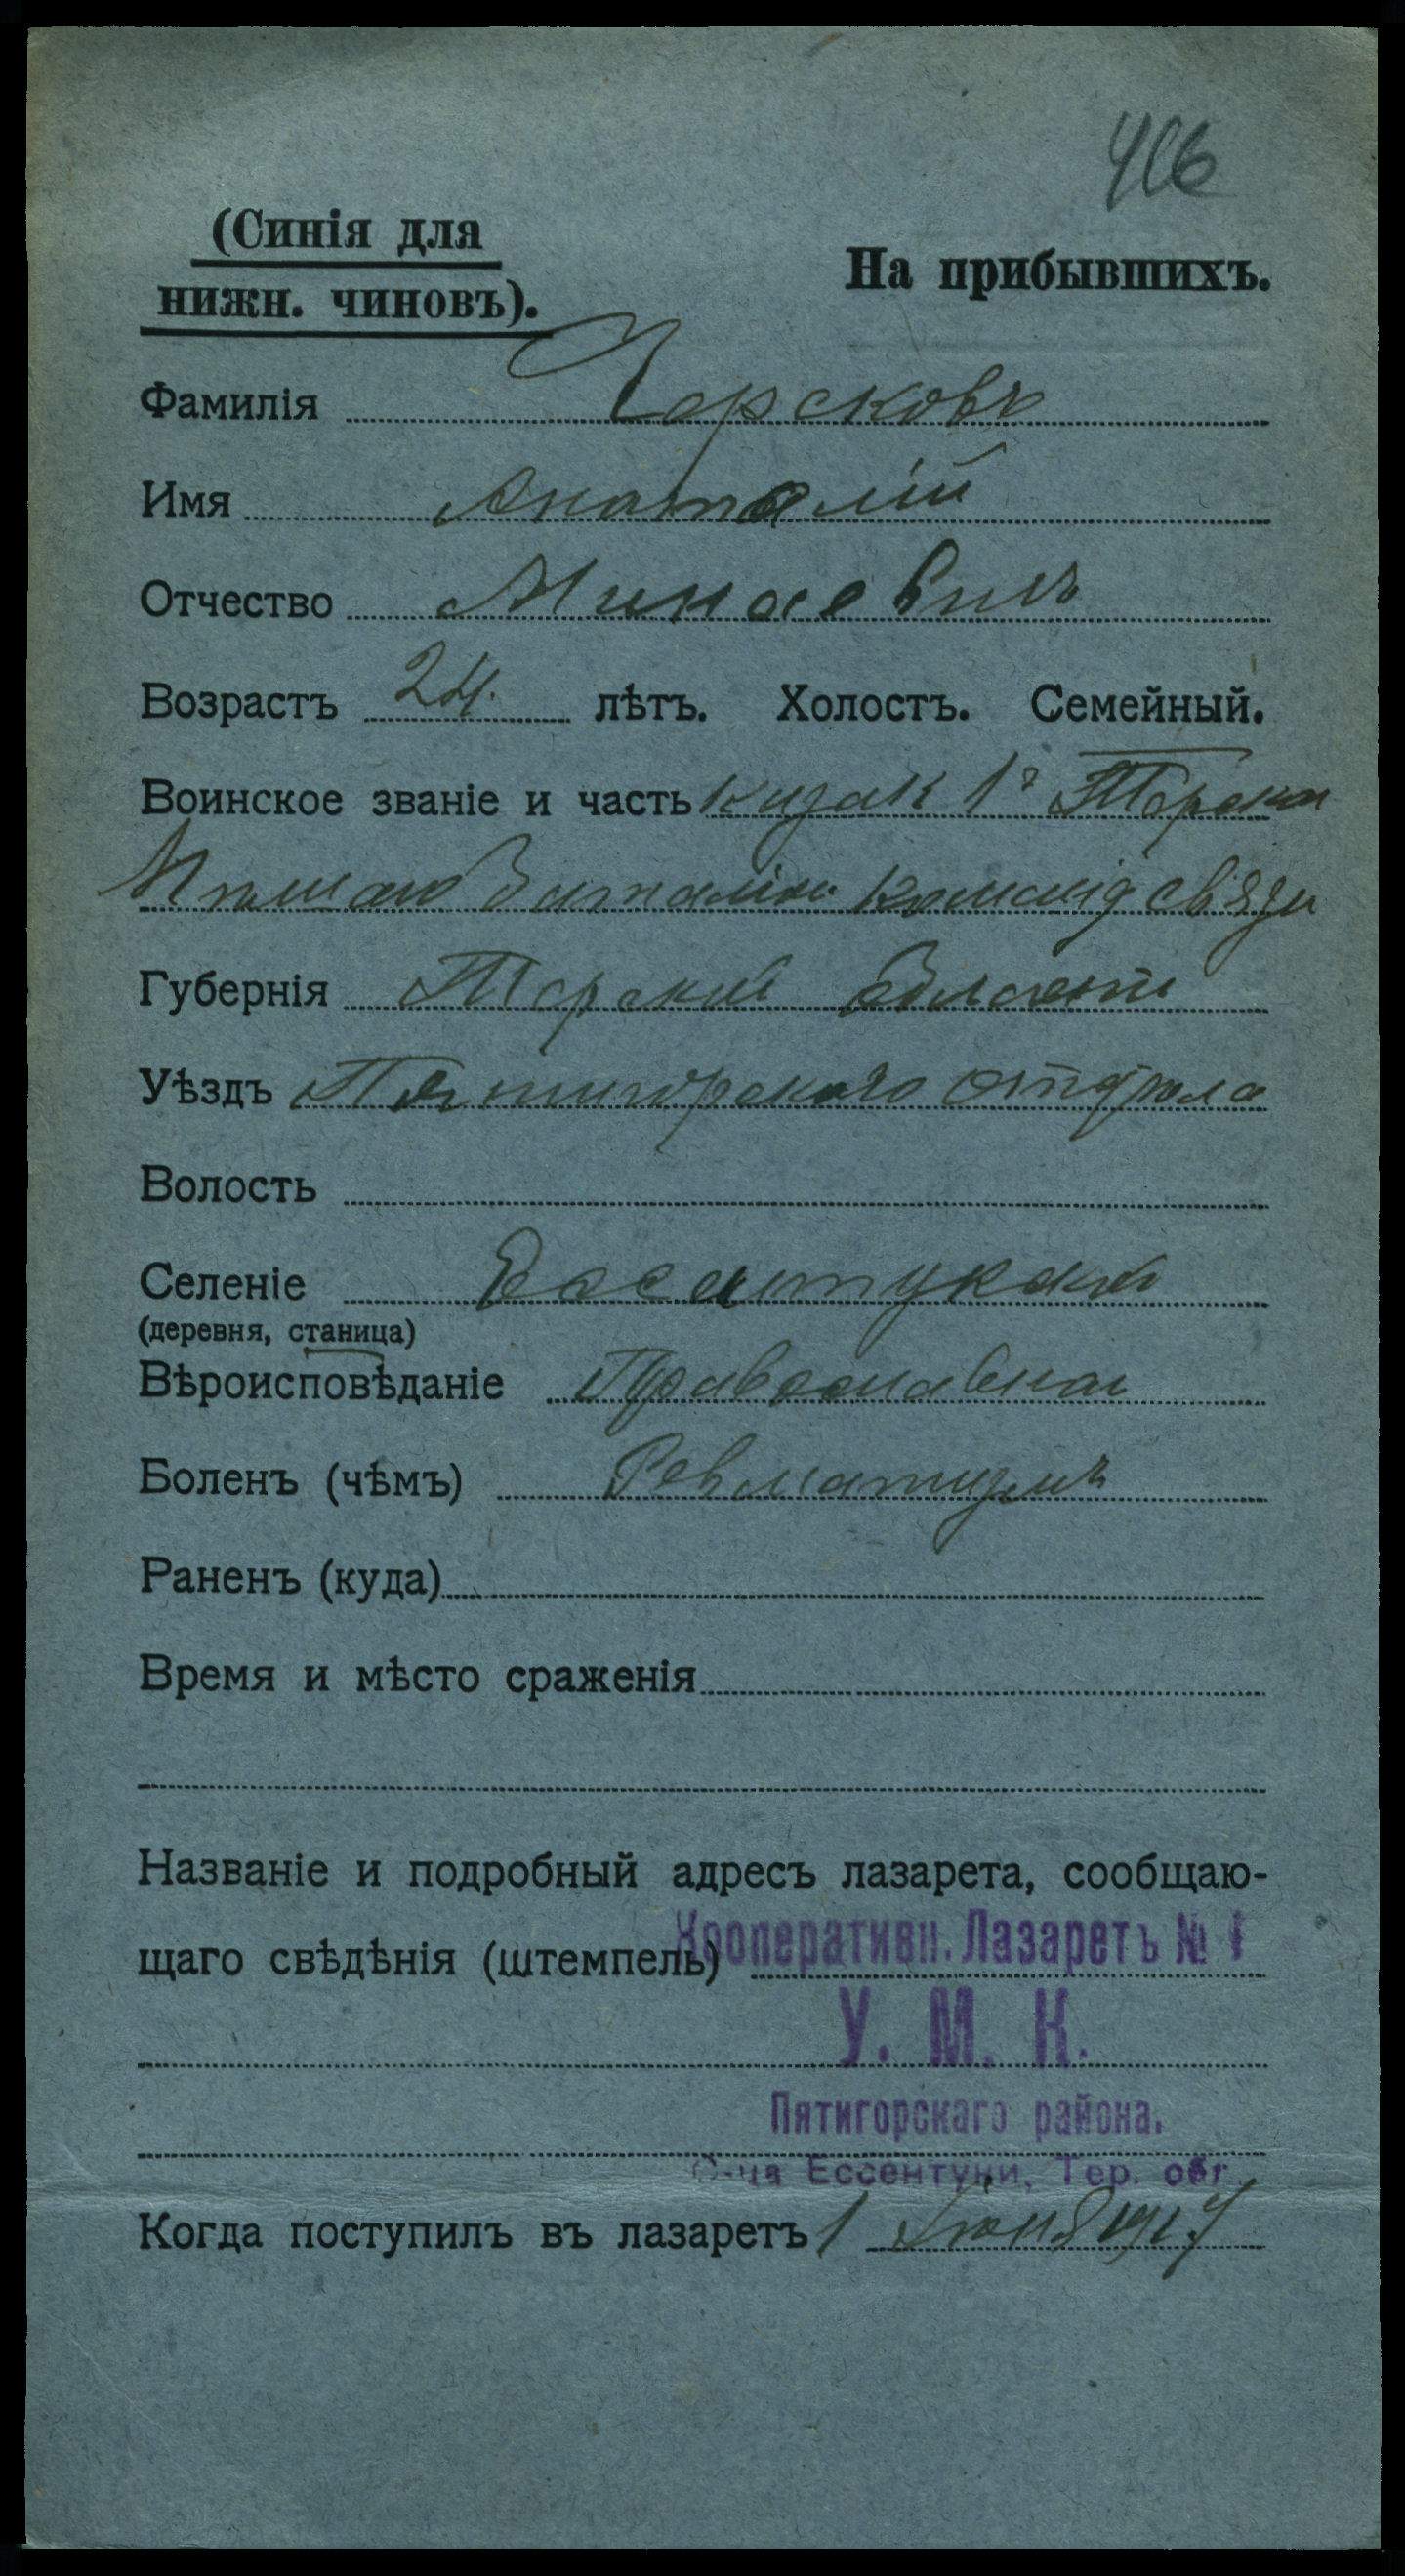 416
(Синія для
нижн. чиновъ).
На прибывшихъ.
Фамилія Горсковъ
Имя Анатолій
Отчество Минаевичъ
Возрастъ 24. лѣтъ. Холостъ. Семейный.
Воинское званіе и часть казак 1го Терскаг
Пѣшаго баталіон команд связи
Губернія Терской области
Уѣздъ Пятигорскаго отдѣла
Волость
Селеніе Ессентукской
(деревня, станица)
Вѣроисповѣданіе Православная
Боленъ (чѣмъ) Ревматизмъ
Раненъ (куда)
Время и мѣсто сраженія
Названіе и подробный адресъ лазарета, сообщаю-
щаго свѣдѣнія (штемпель) Кооперативн. Лазаретъ № 1
У. М. К.
Пятигорскаго района.
С-ца Ессентуки, Тер. обл.
Когда поступилъ въ лазаретъ 1 Іюня 1917